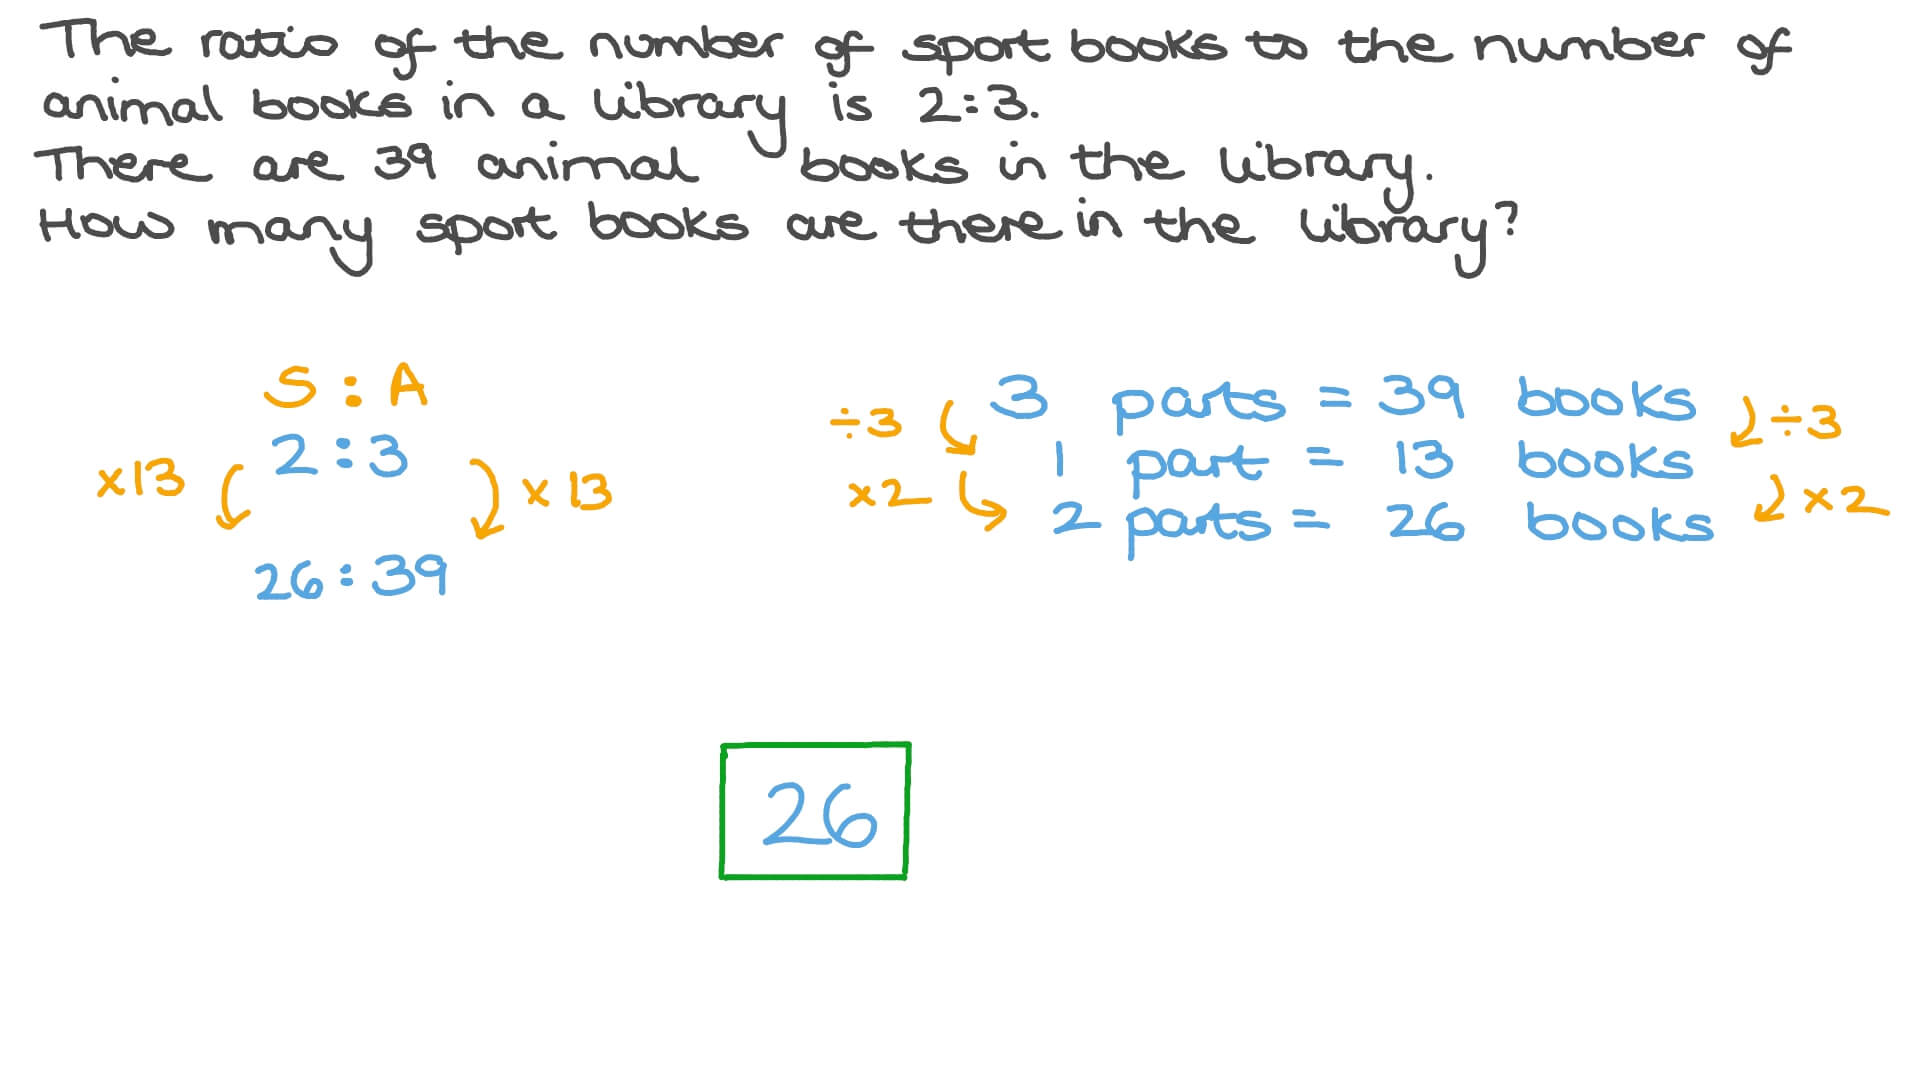 The ratio of the number of sport books to the number of
animal books in a library is 2:3.
There are 39 animal books in the library.
How many sport books are there in the library?
S : A
2 : 3
×13 ×13
26 : 39
÷3 3 parts = 39 books ÷3
1 part = 13 books
×2 2 parts = 26 books ×2
26